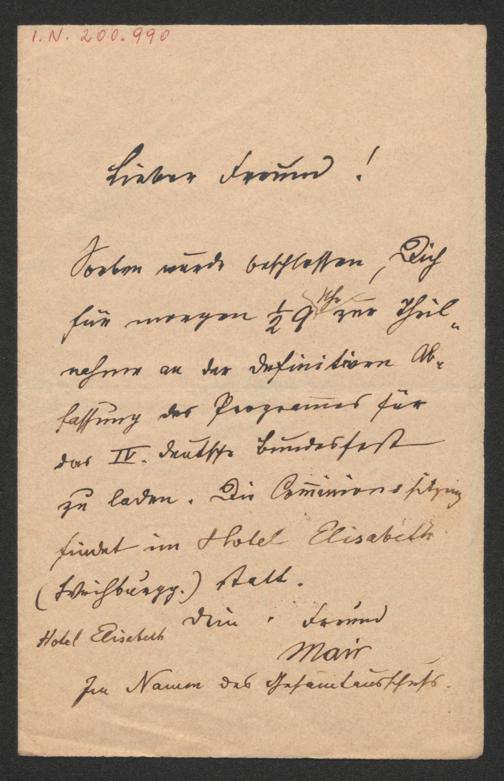 I.N. 200.990
Lieber Freund!
Soeben wurde beschlossen, Dich
für morgen ½ 9 Uhr zur Theil-
nahme an der definitiven Ab-
fassung des Programmes für
das IV. deutsche Bundesfest
zu laden. Die Commissionssitzung
findet im Hotel Elisabeth
(Weihburgg.) statt.
Dein Freund
Hotel Elisabeth
Mair
Im Namen des Gesamtausschuss.